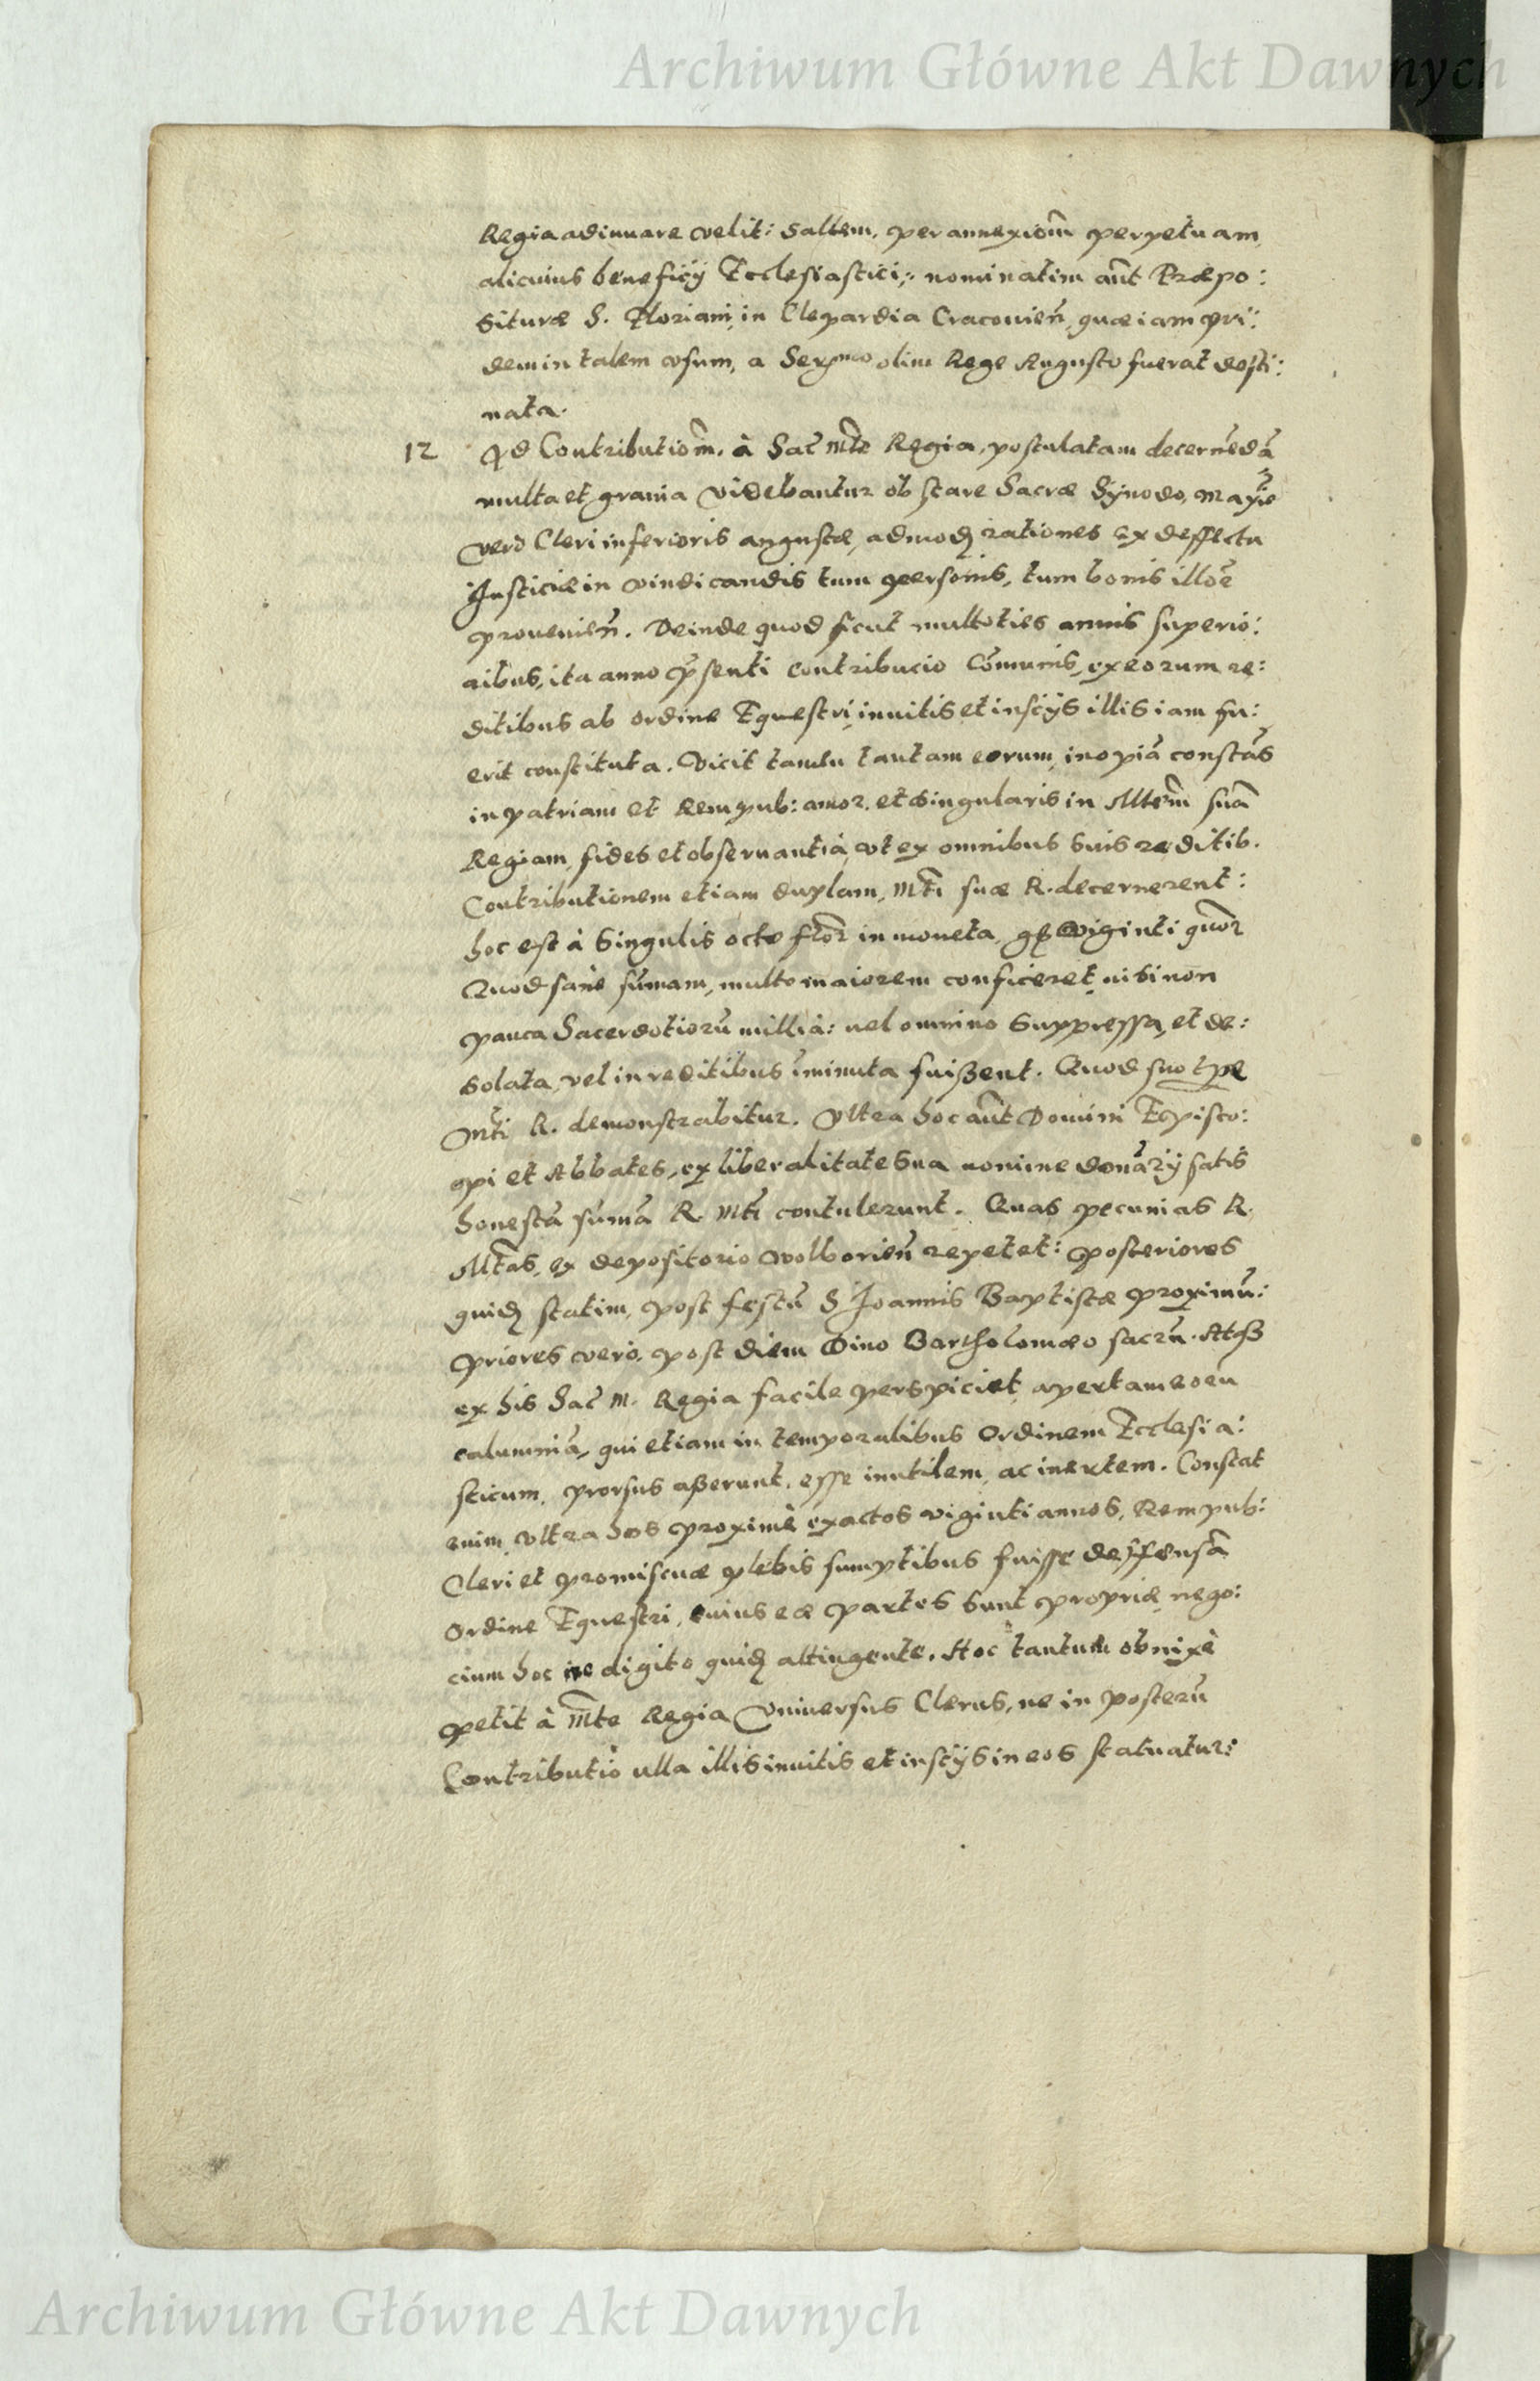 Archiwum Główne Akt Dawnych
Regia adiuuare velit: saltem, per annexiom̃ perpetuam
alicuius beneficÿ Ecclesiastici: nominatim aũt Præpo:
situræ S. Floriani, in Clepardia Cracouieñ, quæ iam pri:
dem in talem vsum, a Sermo olim Rege Augusto fuerat desti:
nata.
12 Ad Contributiom̃, à Sac̃ Mte Regia, postulatam decernẽdã
multa et grauia videbantur obstare Sacræ Sÿnodo, maxie
verò Cleri inferioris angustæ, admodȝ rationes ex deffectu
Justiciæ in vindicandis tum personis, tum bonis illoꝝ
prouenieñ. Deinde quod sicut multoties annis superio:
ribus, ita anno p̃senti contribucio Cõmunis, ex eorum re:
ditibus ab ordine Equestri, inuitis et inscÿs illis iam fu:
erit constituta. Vicit tamen tantam eorum, inopiã constãs
in patriam et Rempub: amor, et singularis in Mtem̃ suã
Regiam, fides et obseruantia, vt ex omnibus suis reditib.
Contributionem etiam duplam, Mti suæ R. decernerent:
hoc est à singulis octo floꝝ in moneta, gꝫ viginti quoꝝ
Quod sanè sũmam, multo maiorem conficeret, nisi non
pauca Sacerdotiorũ millia: uel omnino suppressa, et de:
solata, vel in reditibus ĩminuta fuißent. Quod suo tpe
Mti R. demonstrabitur. Vltra hoc aũt Domini Episco:
pi et Abbates, ex liberalitate sua nomine donãrÿ satis
honestã sũmã R. Mti contulerunt. Quas pecunias R.
Mtas, ex depositorio Wolborieñ repetet: posteriores
quidȝ statim, post festũ S Joannis Baptistæ proximũ:
priores vero, post diem Diuo Bartholomæo sacrũ. Atqꝫ
ex his Sac̃ M. Regia facile perspiciet, apertam eoꝝ
calumniã, qui etiam in temporalibus Ordinem Ecclesia:
sticum, prorsus aßerunt, esse inutilem, ac inertem. Constat
enim, vltra hos proximè exactos viginti annos, Rempub:
Cleri et promiscuæ plebis sumptibus fuisse deffensã
Ordine Equestri, cuius eæ partes sunt propriæ, nego:
cium hoc ne digito quidȝ attingente. Hoc tantum obnixè
petit à Mte Regia Vniuersus Clerus, ne in posterũ
Contributio ulla illis inuitis et inscÿs in eos statuatur:
Archiwum Główne Akt Dawnych